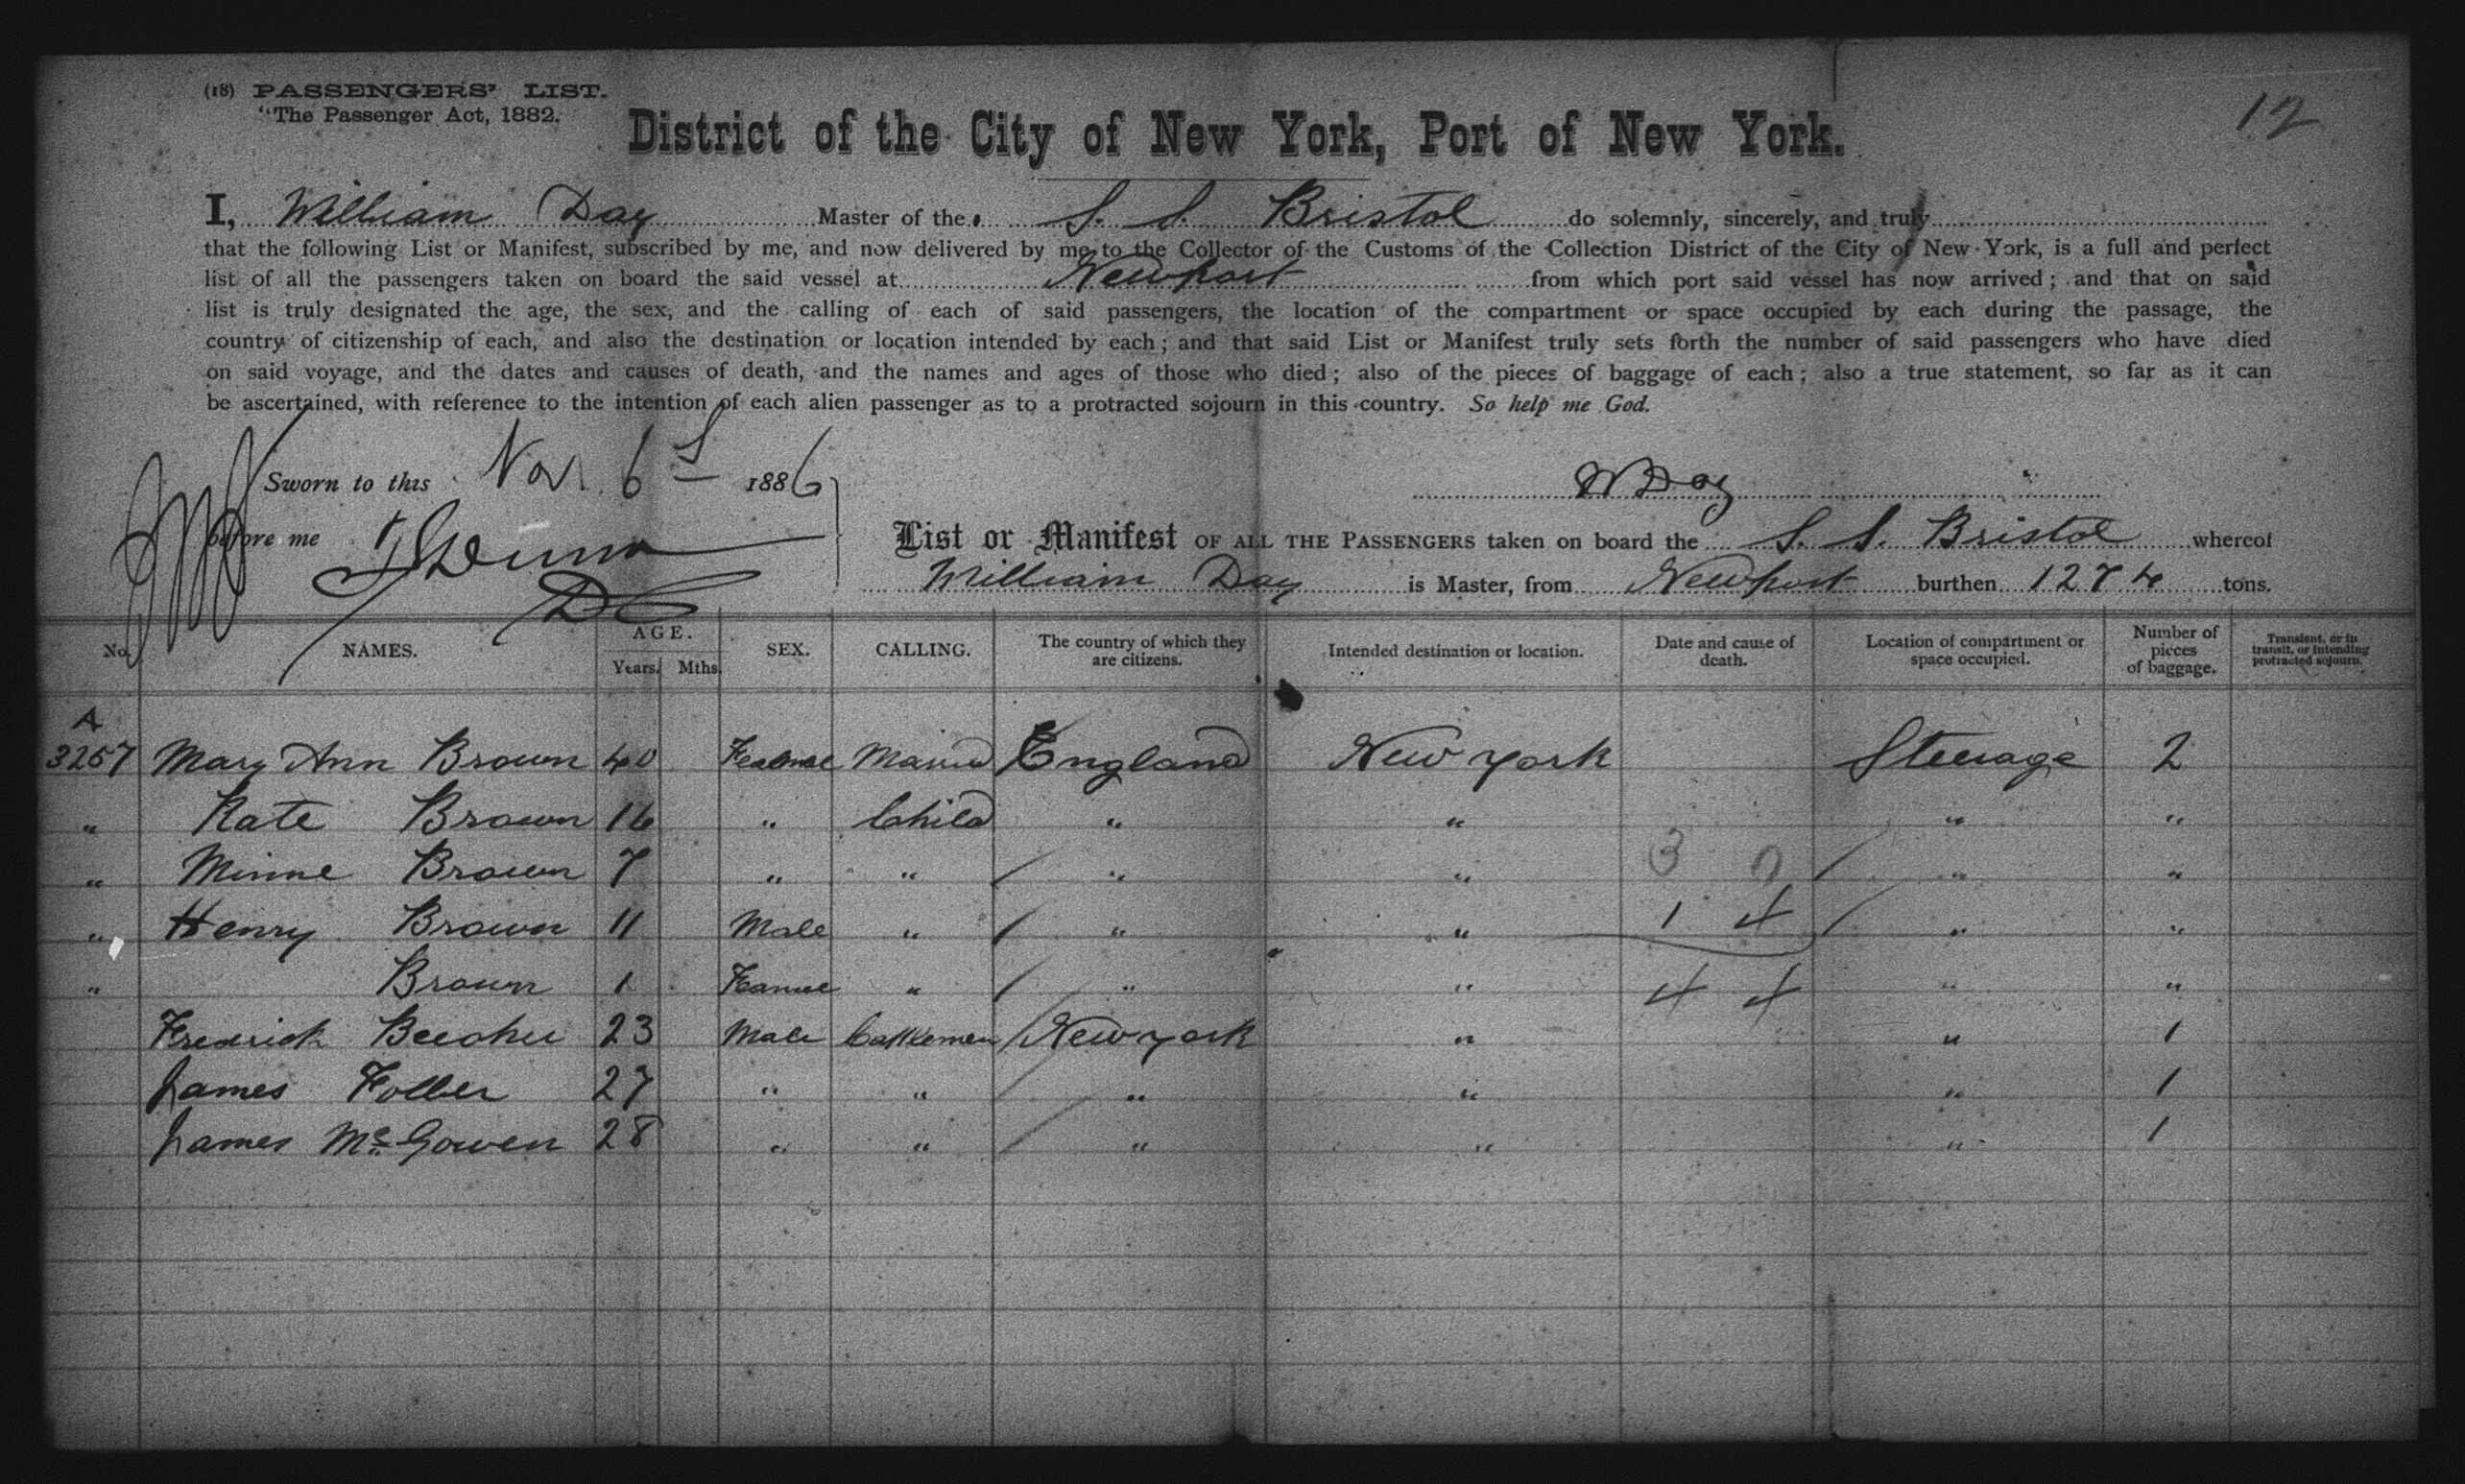 (18) PASSENGERS' LIST.
"The Passenger Act, 1882.
12
District of the City of New York, Port of New York.
I, William Day Master of the S. S. Bristol do solemnly, sincerely, and truly
that the following List or Manifest, subscribed by me, and now delivered by me to the Collector of the Customs of the Collection District of the City of New York, is a full and perfect
list of all the passengers taken on board the said vessel at Newport from which port said vessel has now arrived; and that on said
list is truly designated the age, the sex, and the calling of each of said passengers, the location of the compartment or space occupied by each during the passage, the
country of citizenship of each, and also the destination or location intended by each; and that said List or Manifest truly sets forth the number of said passengers who have died
on said voyage, and the dates and causes of death, and the names and ages of those who died; also of the pieces of baggage of each; also a true statement, so far as it can
be ascertained, with reference to the intention of each alien passenger as to a protracted sojourn in this country. So help me God.
Sworn to this Nov. 6 1886
W Day
before me
DC
List or Manifest OF ALL THE PASSENGERS taken on board the S. S. Bristol whereof
William Day is Master, from Newport burthen 1274 tons.
No. NAMES. AGE. Years. Mths. SEX. CALLING. The country of which they are citizens. Intended destination or location. Date and cause of death. Location of compartment or space occupied. Number of pieces of baggage. Transient, or in transit, or intending protracted sojourn.
A
3257 Mary Ann Brown 40 Female Married England New York Steerage 2
" Kate Brown 16 " Child " " " "
" Minne Brown 7 " " " " 3 0 " "
" Henry Brown 11 Male " " " 1 4 " "
" Brown 1 Female " " " 4 4 " "
Fredrick Beecher 23 Male Cattlemen New York " " 1
James Folber 27 " " " " " 1
James McGowen 28 " " " " " 1